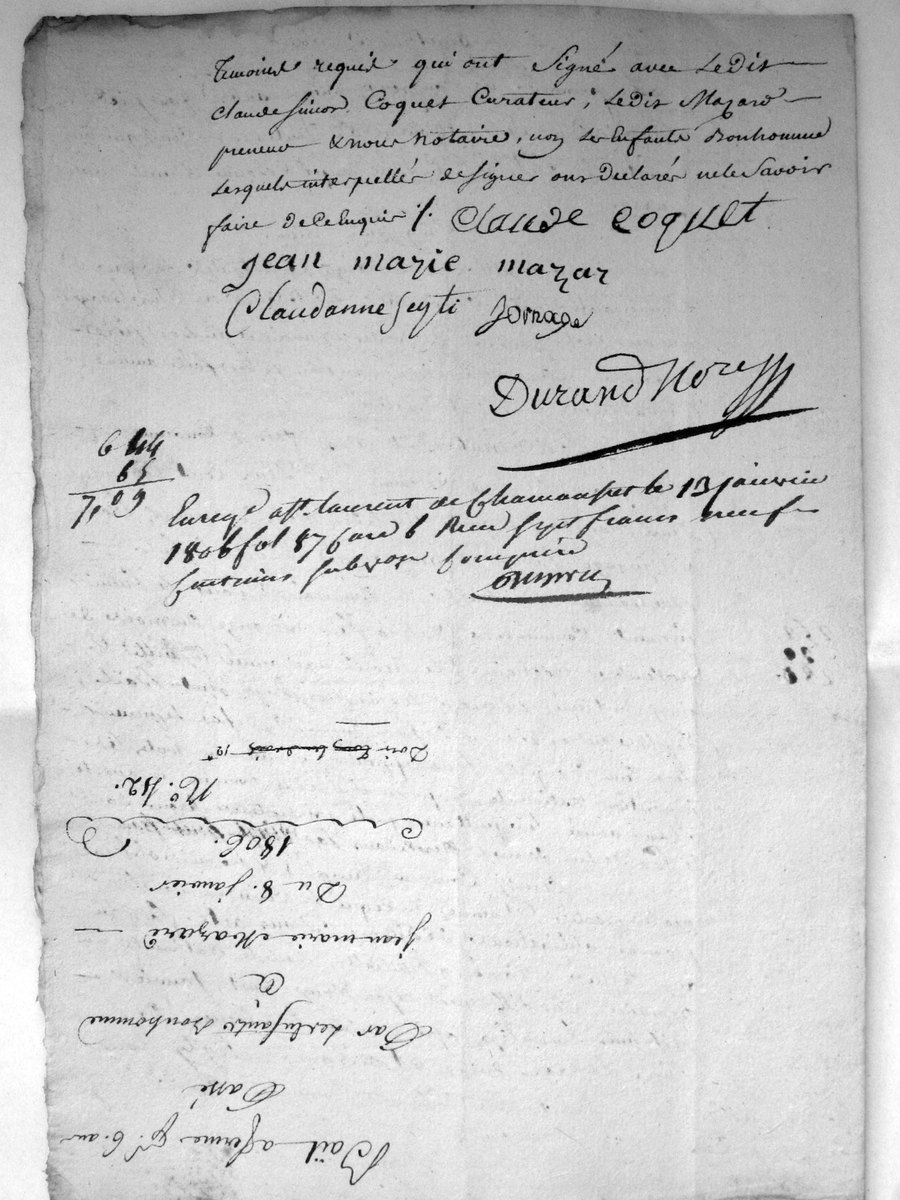 Temoins requis qui ont Signé avec Ledit
Claude Simon Coquet Curateur, Ledit Mazard
preneur & nous Notaire, non les Enfants Bonhomme
Lesquels interpellés designer ont Declarés nele Savoir
faire dece Enquis /. Claude Coquet
jean marie mazar
Claudanne Seyti Jornage
Durand Nore
6 44
65
7,09
Enregé à St. laurent de Chamousset le 13 janvier
1806 fol 87 Case 6 Recu Sept francs neuf
Centimes Subvon Comprise
Bail aferme pr. 6. an
Passé
Par Les Enfants Bonhomme
A
jean marie Mazard
Du 8. janvier
1806.
No. 42.
Doit